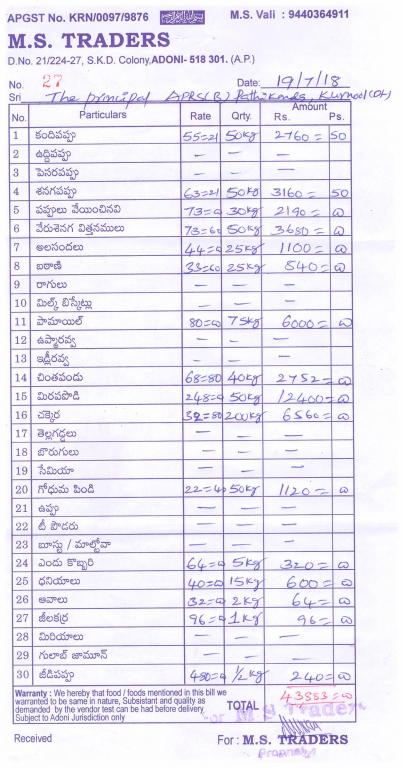 APGST No. KRN/0097/9876 M.S. Vali : 9440364911
M.S. TRADERS
D.No. 21/224-27, S.K.D. Colony, ADONI- 518 301. (A.P.)
No. 27 Date: 19/7/18
Sri The principal APRS(B) Pathikonda, Kurnool(Dt)
No. Particulars Rate Qrty. Amount Rs. Ps.
1 కందిపప్పు 55=21 50kg 2760= 50
2 ఉద్దిపప్పు — — —
3 పెసరపప్పు — — —
4 శనగపప్పు 63=21 50kg 3160= 50
5 పప్పులు వేయించినవి 73=00 30kg 2190=00
6 వేరుశెనగ విత్తనములు 73=60 50kg 3680=00
7 అలసందలు 44=00 25kg 1100=00
8 బఠాణి 33=60 25kg 840=00
9 రాగులు — — —
10 మిల్క్ బిస్కేట్లు — — —
11 పామాయిల్ 80=00 75kg 6000=00
12 ఉప్మారవ్వ — — —
13 ఇడ్లీరవ్వ — — —
14 చింతపండు 68=80 40kg 2752=00
15 మిరపపొడి 248=00 50kg 12400=00
16 చక్కెర 32=80 200kg 6560=00
17 తెల్లగడ్డలు — — —
18 బొరుగులు — — —
19 సేమియా — — —
20 గోధుమ పిండి 22=40 50kg 1120=00
21 ఉప్పు — — —
22 టీ పౌడరు — — —
23 బూస్టు / మాల్టోవా — — —
24 ఎండు కొబ్బరి 64=00 5kg 320=00
25 ధనియాలు 40=00 15kg 600=00
26 ఆవాలు 32=00 2kg 64=00
27 జీలకర్ర 96=00 1kg 96=00
28 మిరియాలు — — —
29 గులాబ్ జామూన్ — — —
30 జీడిపప్పు 480=00 1/2kg 240=00
Warranty : We hereby that food / foods mentioned in this bill we
warranted to be same in nature, Subsistant and quality as
demanded by the vendor test can be had before delivery
Subject to Adoni Jurisdiction only
TOTAL 43883=00
For M.S Traders
Received For : M.S. TRADERS